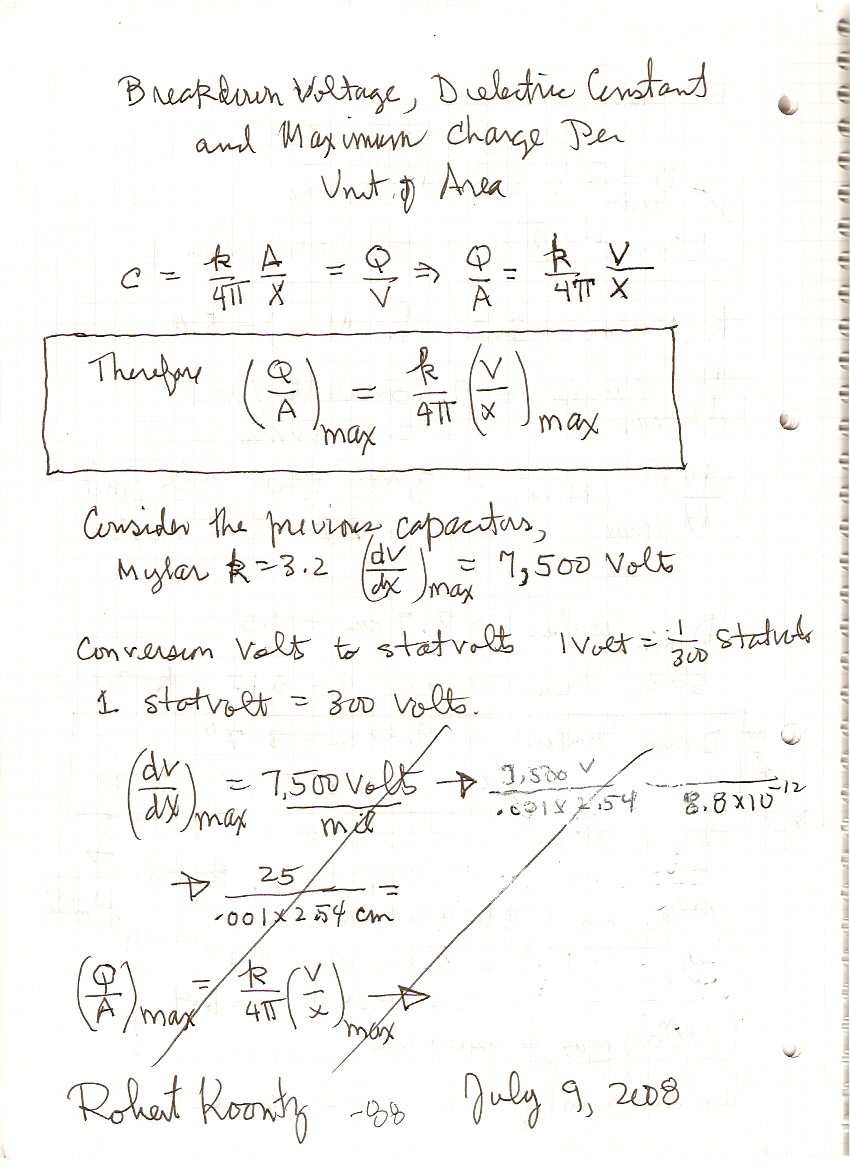 Breakdown Voltage, Dielectric Constant
and Maximum Charge Per
Unit of Area
C = k/4π A/X = Q/V ⇒ Q/A = k/4π V/X
Therefore (Q/A)max = k/4π (V/x)max
Consider the previous capacitors,
Mylar k=3.2 (dv/dx)max = 7,500 Volts
Conversion Volts to statvolts 1 Volt = 1/300 Statvolts
1 statvolt = 300 Volts.
(dv/dx)max = 7,500 Volts/mil → 7,500 V/.001x2.54 /8.8x10⁻¹²
→ 25/.001x2.54 cm =
(Q/A)max = k/4π (V/x)max →
Robert Koontz -88 July 9, 2008